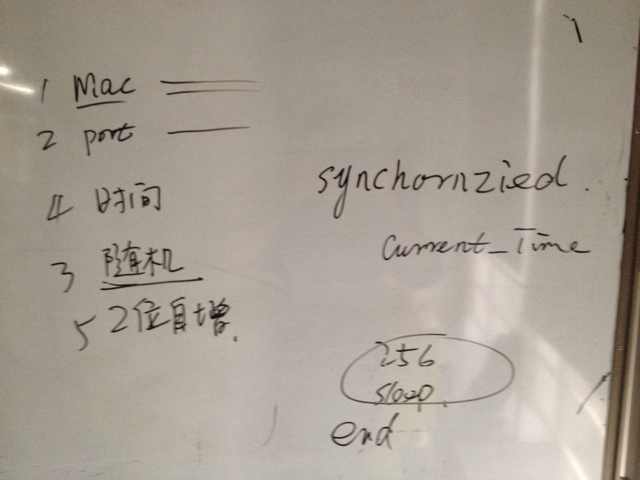 1 Mac
2 port
4 时间
3 随机
5 2位自增.
synchornzied.
Current_Time
256
sleep.
end